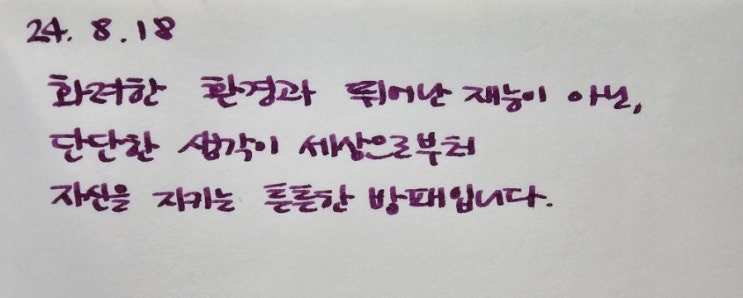 24. 8. 18
화려한 환경과 뛰어난 재능이 아닌,
단단한 생각이 세상으로부터
자신을 지키는 튼튼한 방패입니다.